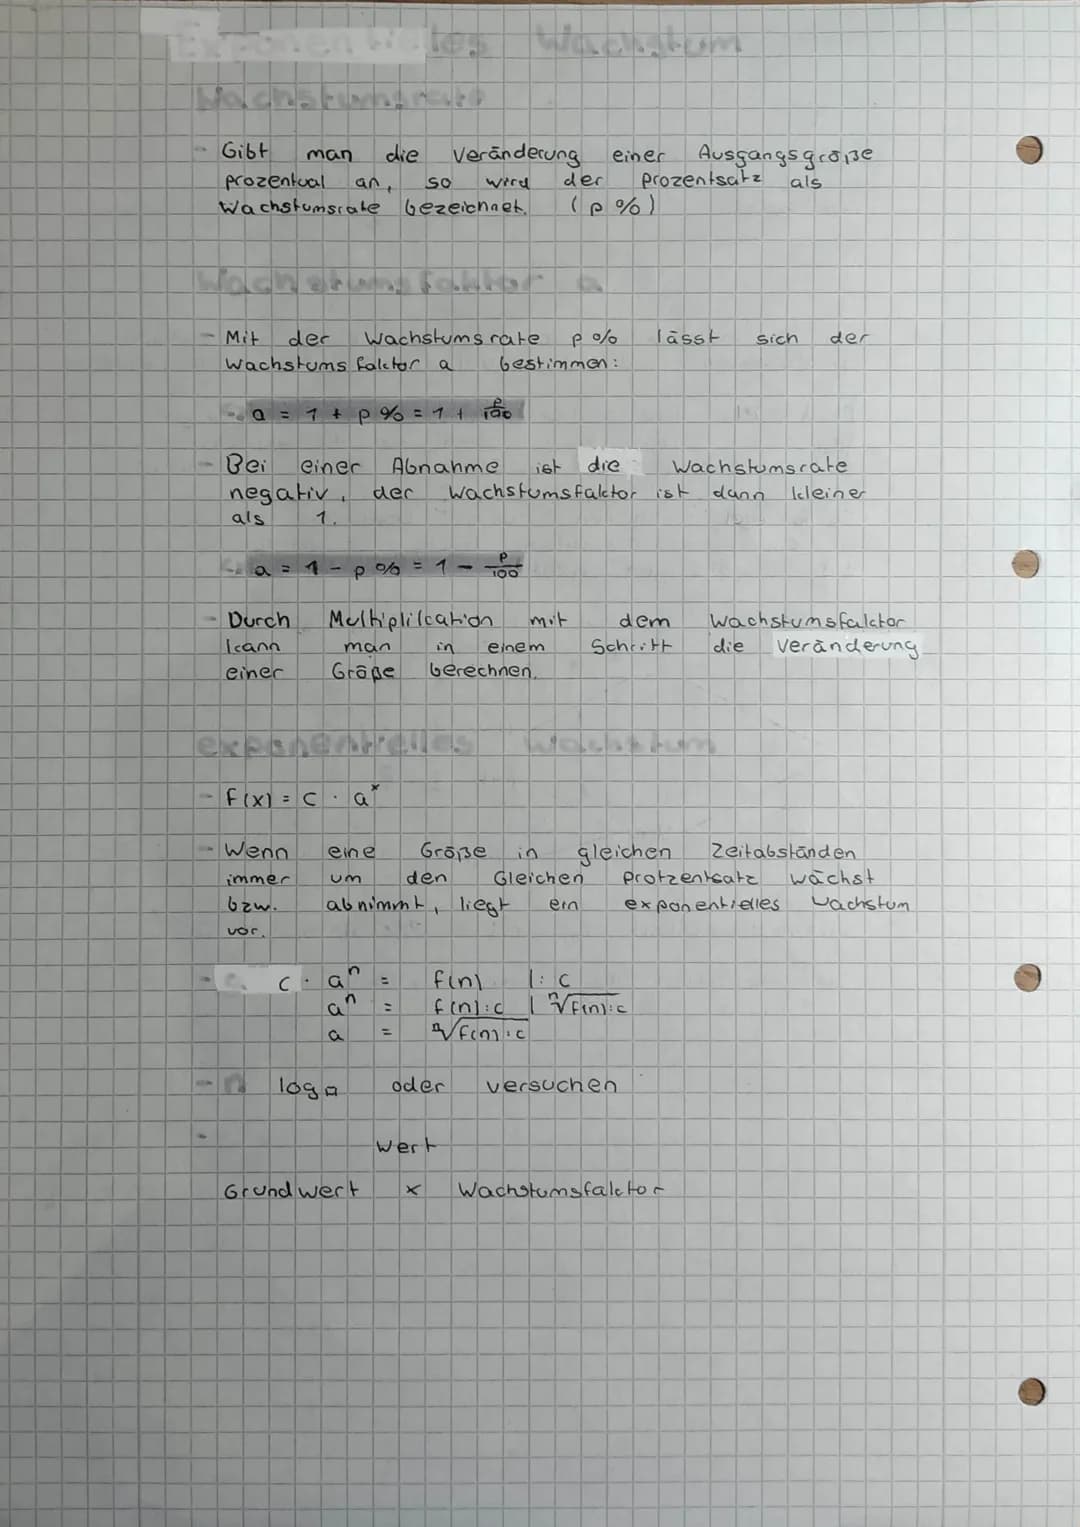 Exponentielles Wachstum
Wachstumsrate
- Gibt man die Veränderung einer Ausgangsgröße
prozentual an, so wird der Prozentsatz als
Wachstumsrate bezeichnet. (p%)
Wachstumsfaktor a
- Mit der Wachstumsrate p% lässt sich der
Wachstumsfaktor a bestimmen:
a = 1 + p% = 1 + p/100
- Bei einer Abnahme ist die Wachstumsrate
negativ, der Wachstumsfaktor ist dann kleiner
als 1.
a = 1 - p% = 1 - p/100
- Durch Multiplikation mit dem Wachstumsfaktor
kann man in einem Schritt die Veränderung
einer Größe berechnen.
exponentielles Wachstum
- f(x) = c · a^x
- Wenn eine Größe in gleichen Zeitabständen
immer um den Gleichen Protzentsatz wächst
bzw. abnimmt, liegt ein exponentielles Wachstum
vor.
- c · a^n = f(n) |: c
a^n = f(n):c | ⁿ√f(n):c
a = ⁿ√f(n):c
- n log□ oder versuchen
- Wert
Grundwert x Wachstumsfaktor